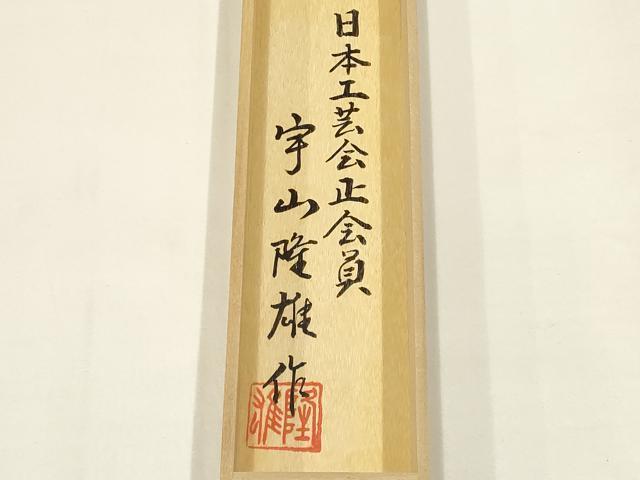 日本工芸会正会員
宇山隆雄作
隆雄